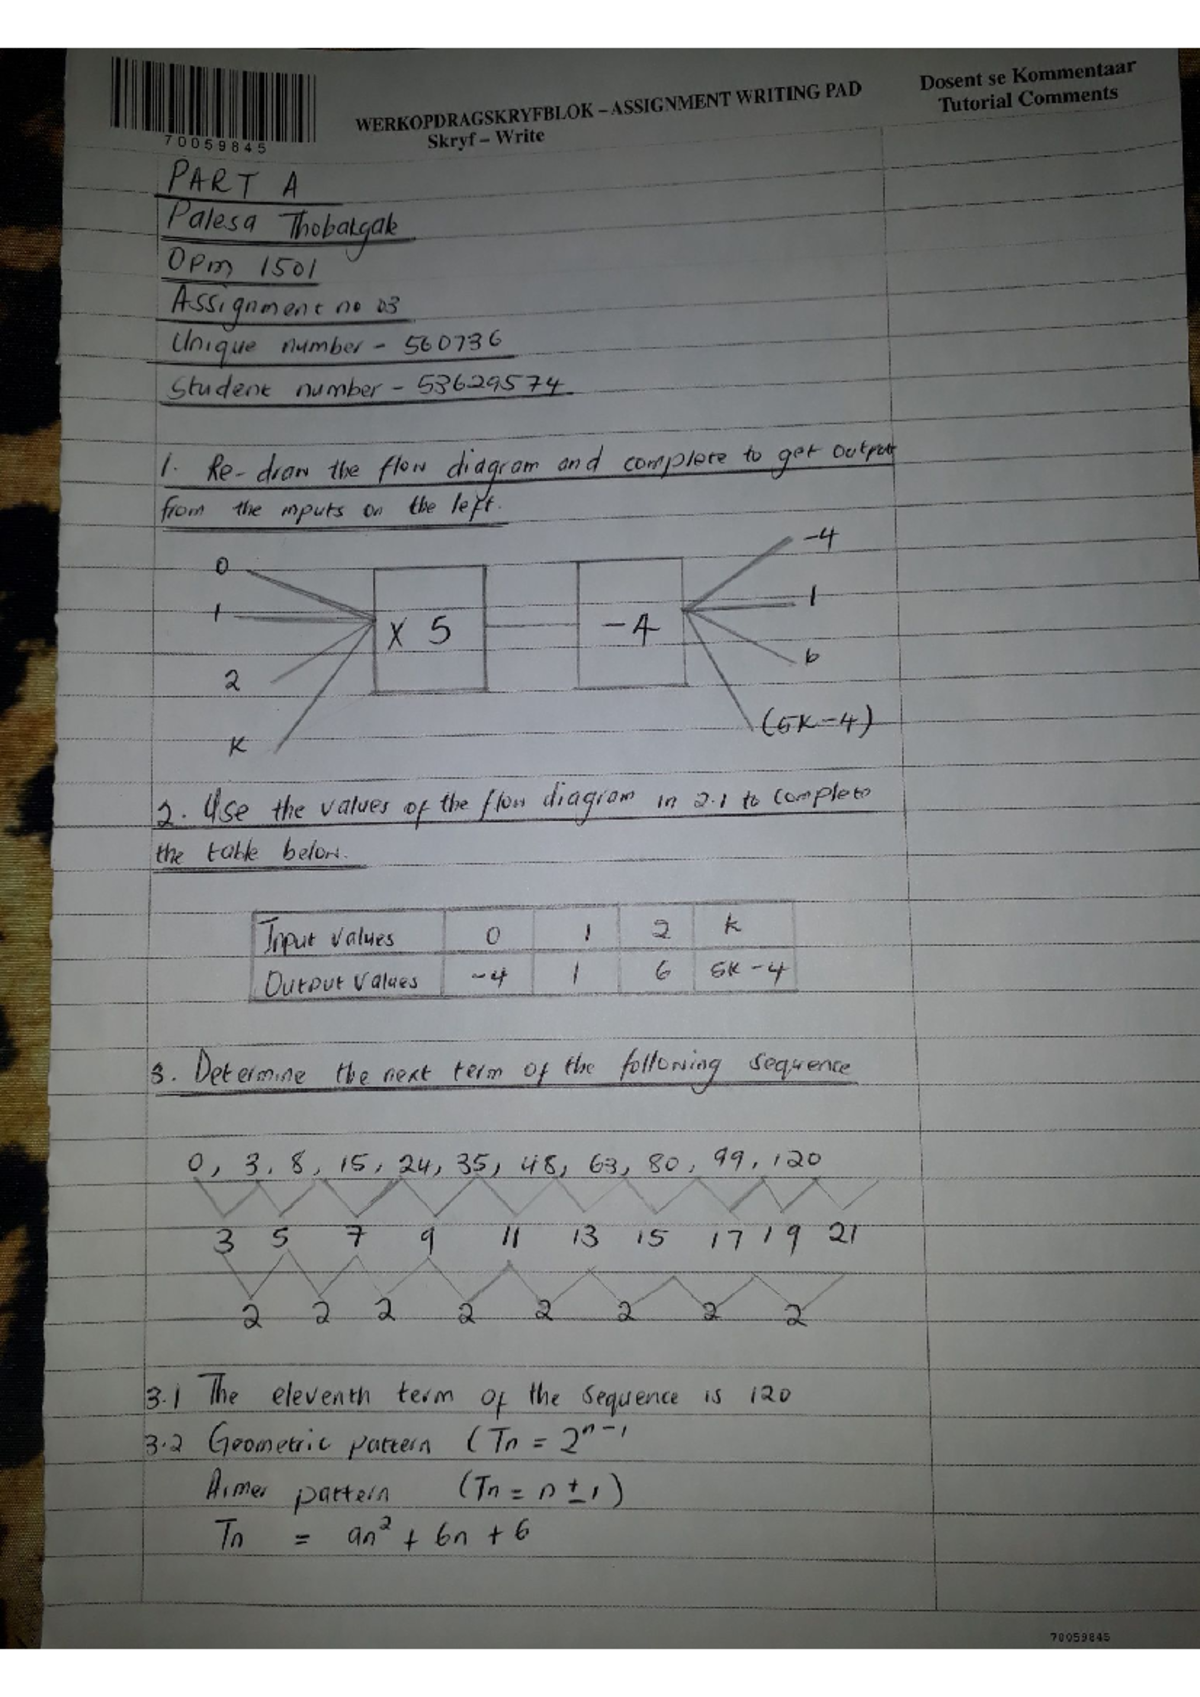 70059845
WERKOPDRAGSKRYFBLOK – ASSIGNMENT WRITING PAD
Skryf – Write
Dosent se Kommentaar
Tutorial Comments
PART A
Palesa Thobakgale
OPM 1501
Assignment no 03
Unique number - 560736
Student number - 53629574
1. Re-draw the flow diagram and complete to get output
from the inputs on the left.
0
1
2
K
x 5
-4
-4
1
6
(5K-4)
2. Use the values of the flow diagram in 2.1 to complete
the table below.
Input values 0 1 2 k
Output values -4 1 6 5K-4
3. Determine the next term of the following sequence
0, 3, 8, 15, 24, 35, 48, 63, 80, 99, 120
3 5 7 9 11 13 15 17 19 21
2 2 2 2 2 2 2 2
3.1 The eleventh term of the sequence is 120
3.2 Geometric pattern (Tn = 2ⁿ⁻¹
pattern (Tn = n ± 1)
Tn = an² + 6n + 6
70059845